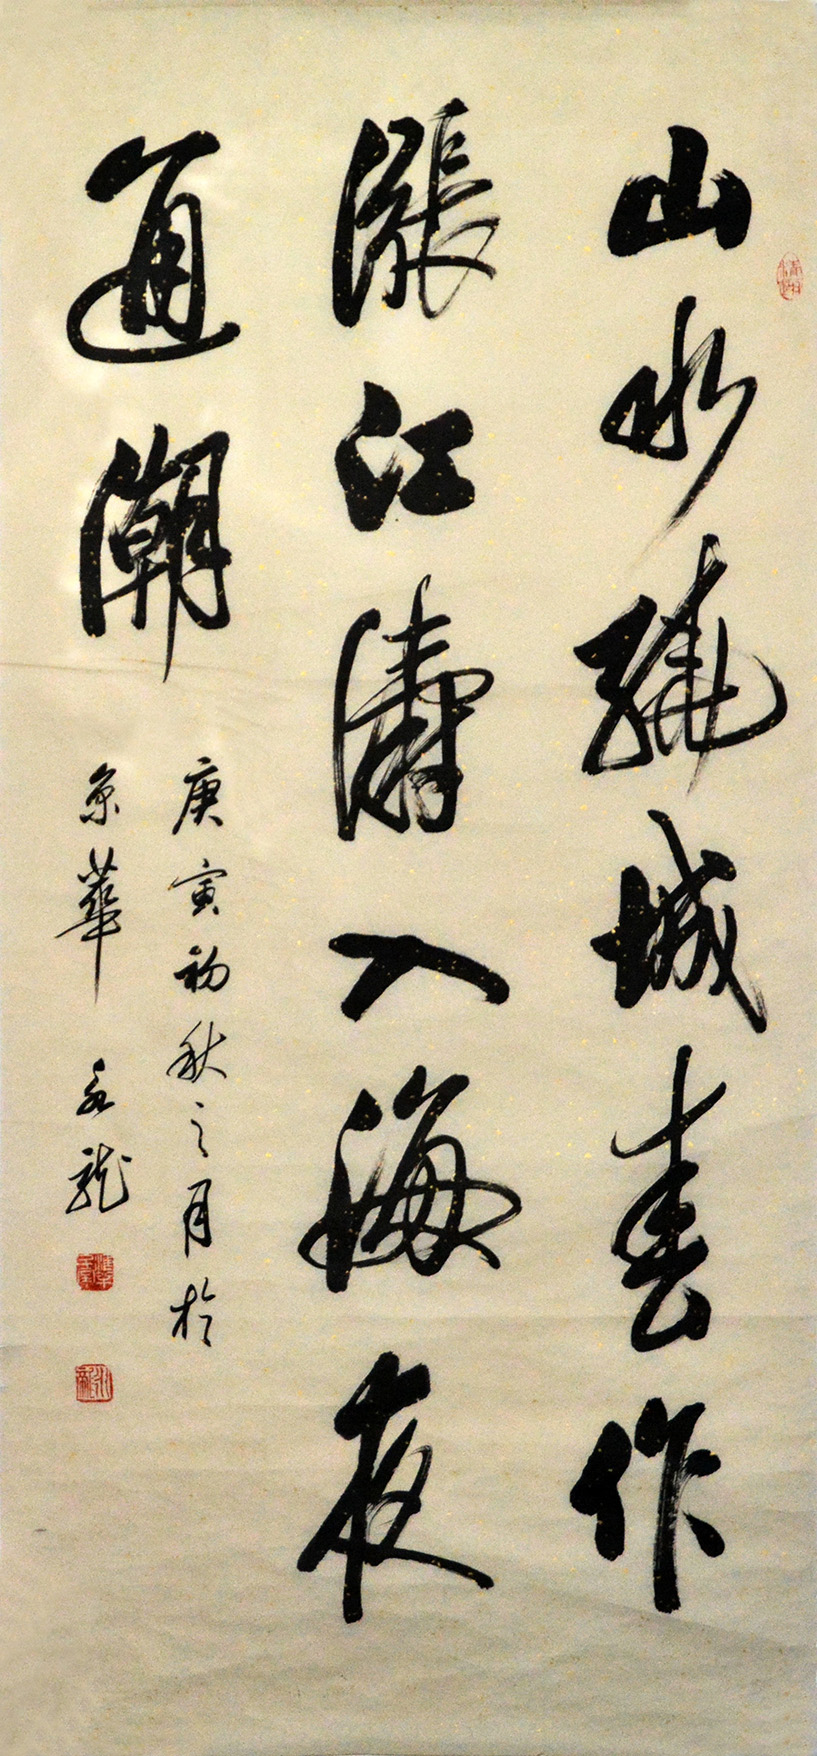 山水繞城春作
漲江濤入海夜
通潮
庚寅初秋之月於
京華 永龍